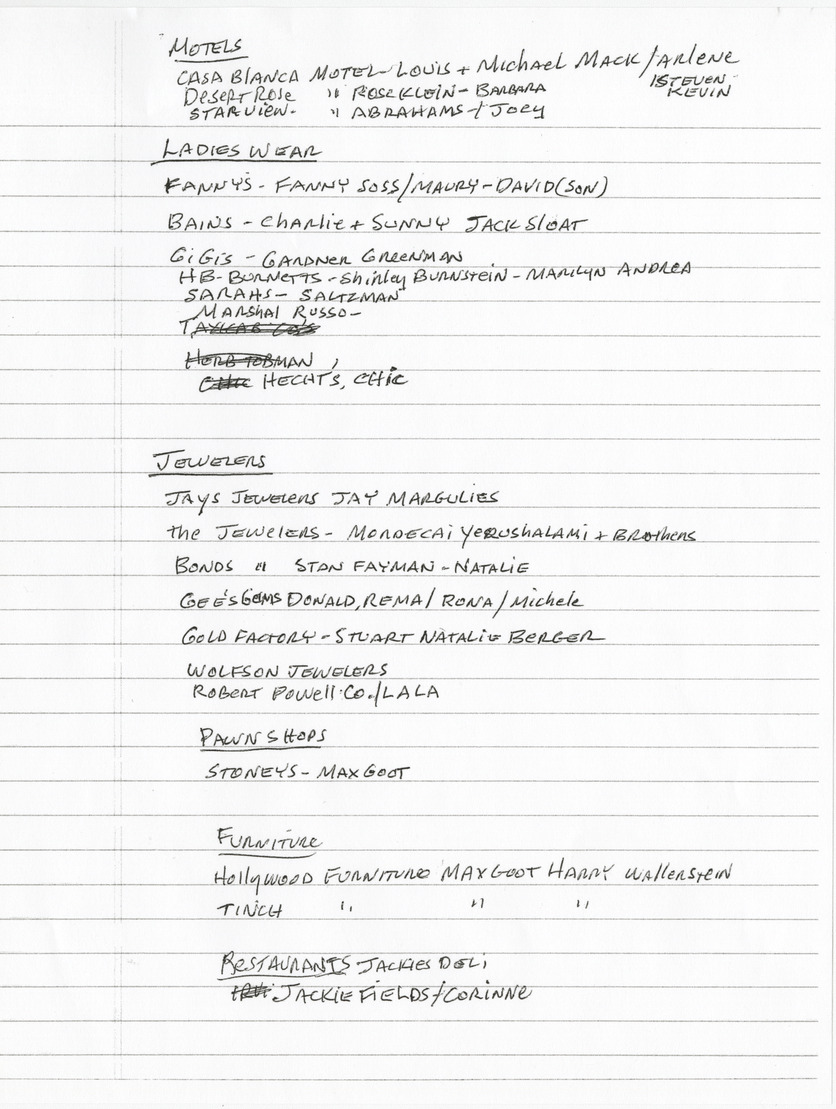 MOTELS
CASA BLANCA MOTEL - LOUIS + MICHAEL MACK / ARLENE
DESERT ROSE " ROSE KLEIN - BARBARA
STEVEN
KEVIN
STARVIEW - " ABRAHAMS + JOEY
LADIES WEAR
FANNYS - FANNY SOSS / MAURY - DAVID (SON)
BAINS - Charlie + SUNNY JACK SLOAT
GiGiS - GARDNER GREENMAN
HB - BURNETTS - Shirley BURNSTEIN - MARILYN ANDREA
SARAHS - SALTZMAN
MARSHAL RUSSO -
HERB TOBMAN ,
CHIC HECHTS, CHIC
JEWELERS
JAYS JEWELERS JAY MARGULIES
the JEWELERS - MORDECAi YERUSHALAMi + BROthers
BONDS " STAN FAYMAN - NATALIE
GEE'S GEMS DONALD, REMA / RONA / Michele
GOLD FACTORY - STUART NATALIE BERGER
WOLFSON JEWELERS
ROBERT POWELL CO. / LALA
PAWN SHOPS
STONEYS - MAX GOOT
FURNITURE
HOLLYWOOD FURNITURE MAX GOOT HARRY WALLERSTEIN
TINCH " " "
RESTAURANTS JACKIES DELi
JACKIE FIELDS / CORINNE